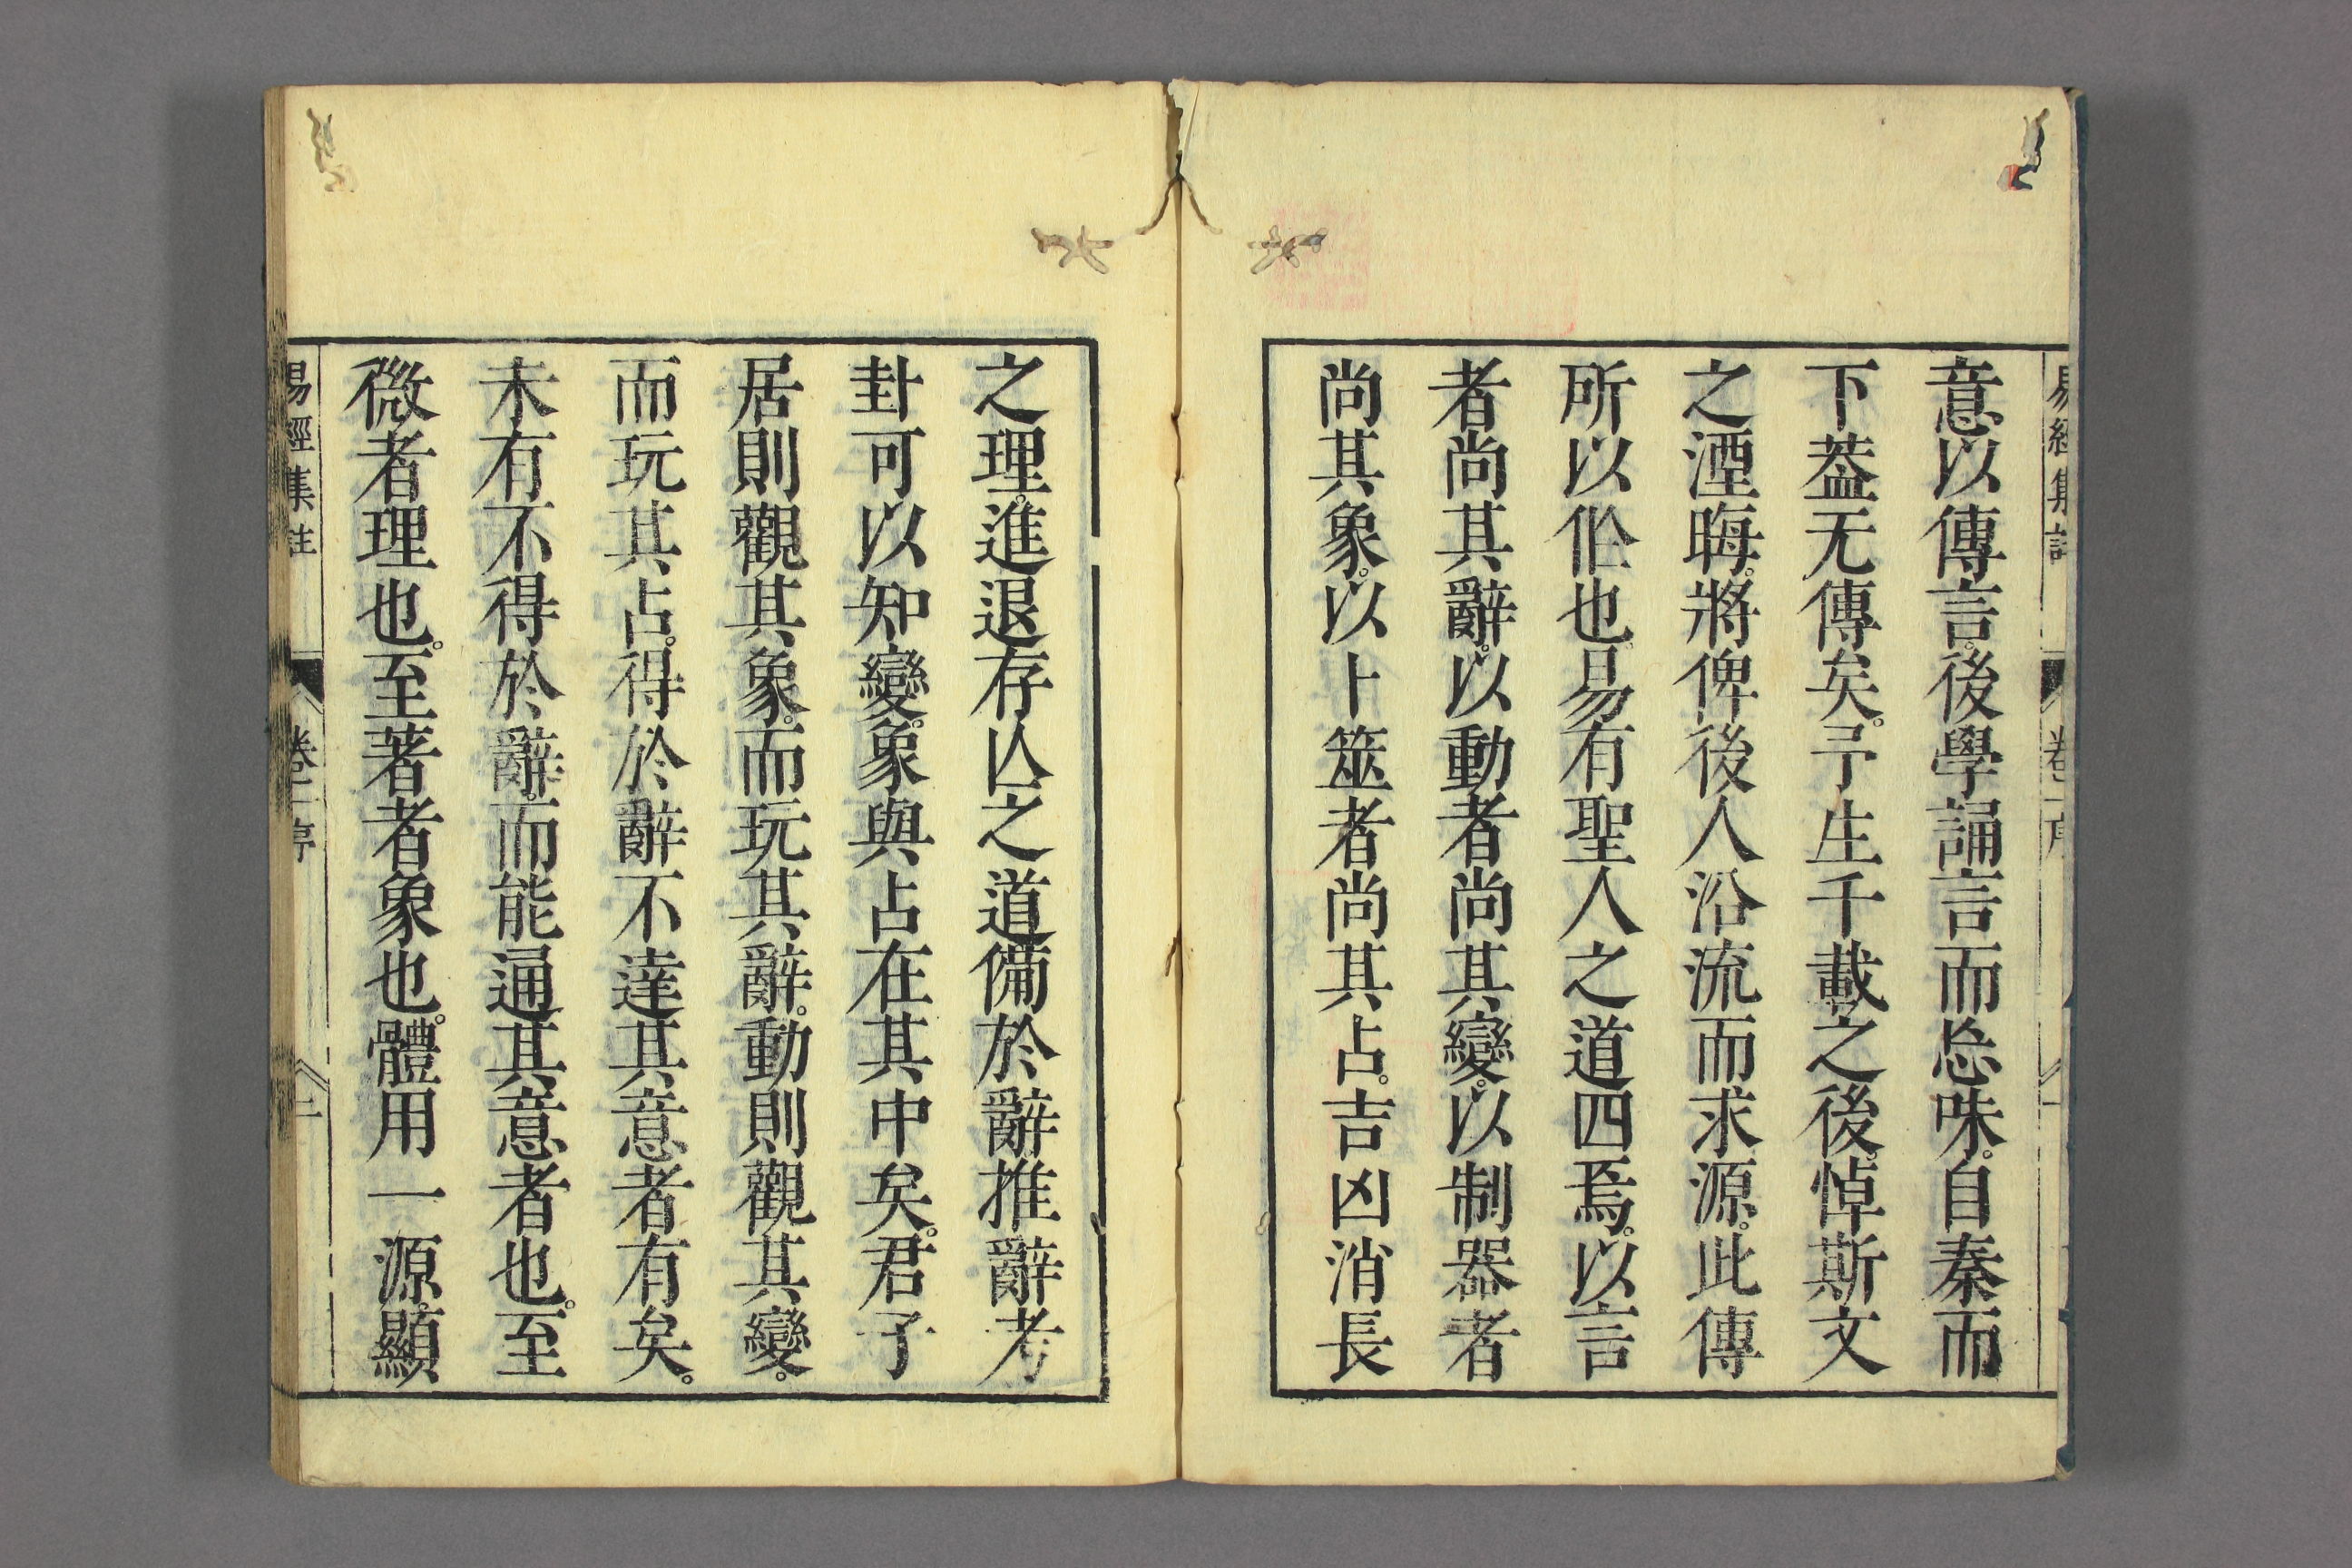 易經集註 卷一序 一
意以傳言。後學誦言而忘味。自秦而
下葢无傳矣。予生千載之後。悼斯文
之湮晦。將俾後人沿流而求源。此傳
所以作也。易有聖人之道四焉。以言
者尚其辭。以動者尚其變。以制器者
尚其象。以卜筮者尚其占。吉凶消長
之理。進退存亾之道備於辭推辭考
卦可以知變。象與占在其中矣。君子
居則觀其象。而玩其辭。動則觀其變。
而玩其占。得於辭不達其意者有矣。
未有不得於辭。而能通其意者也。至
微者理也。至著者象也。體用一源顯
易經集註 卷一序 二